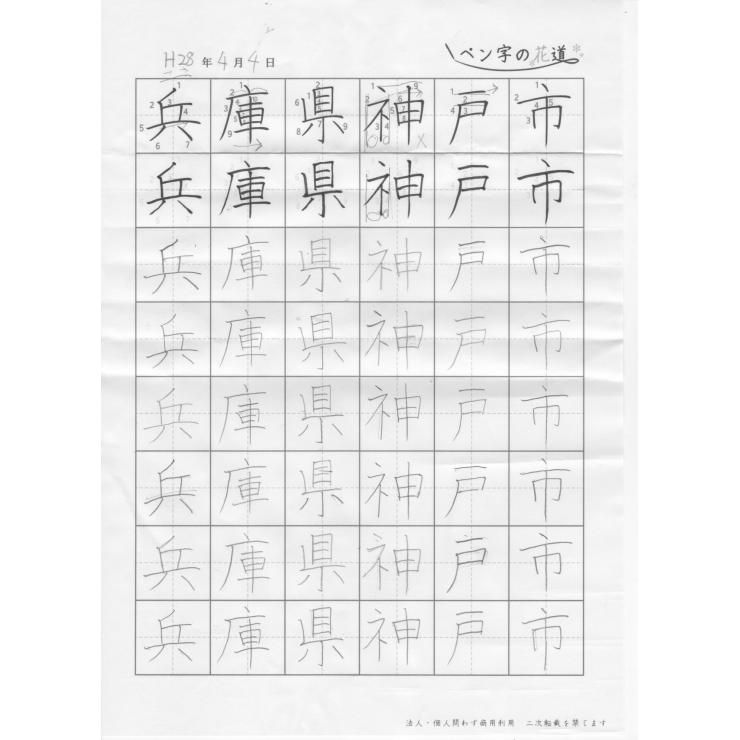 H28年4月4日 ペン字の花道
兵庫県神戸市
兵庫県神戸市
兵庫県神戸市
兵庫県神戸市
兵庫県神戸市
兵庫県神戸市
兵庫県神戸市
兵庫県神戸市
法人・個人問わず商用利用 二次転載を禁じます